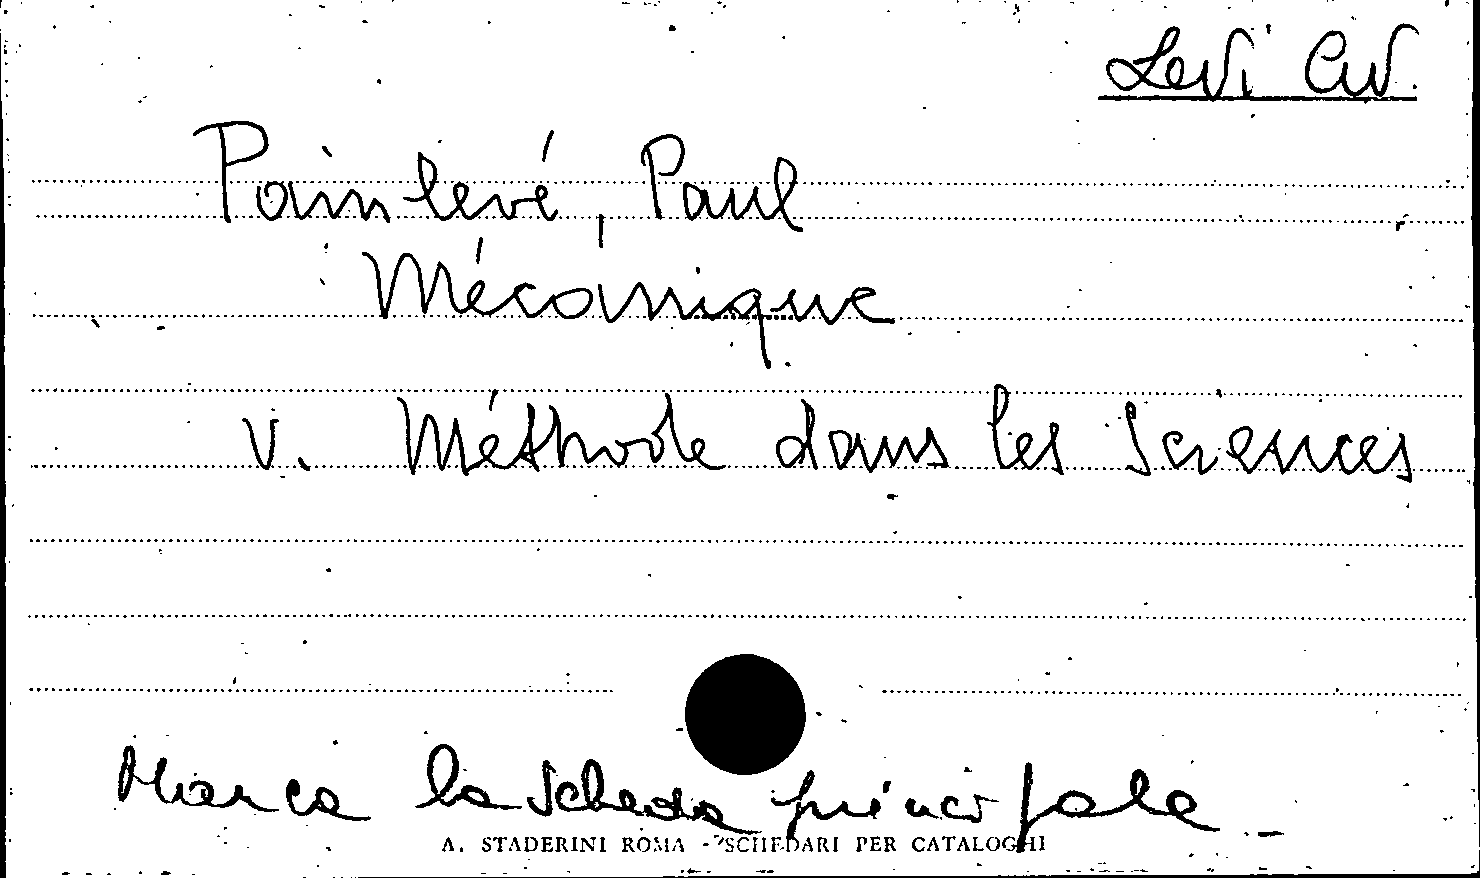 Levi Civ.
Painlevé, Paul
Mécanique
v. Méthode dans les Sciences
Manca la scheda principale
A. STADERINI ROMA - SCHEDARI PER CATALOGHI